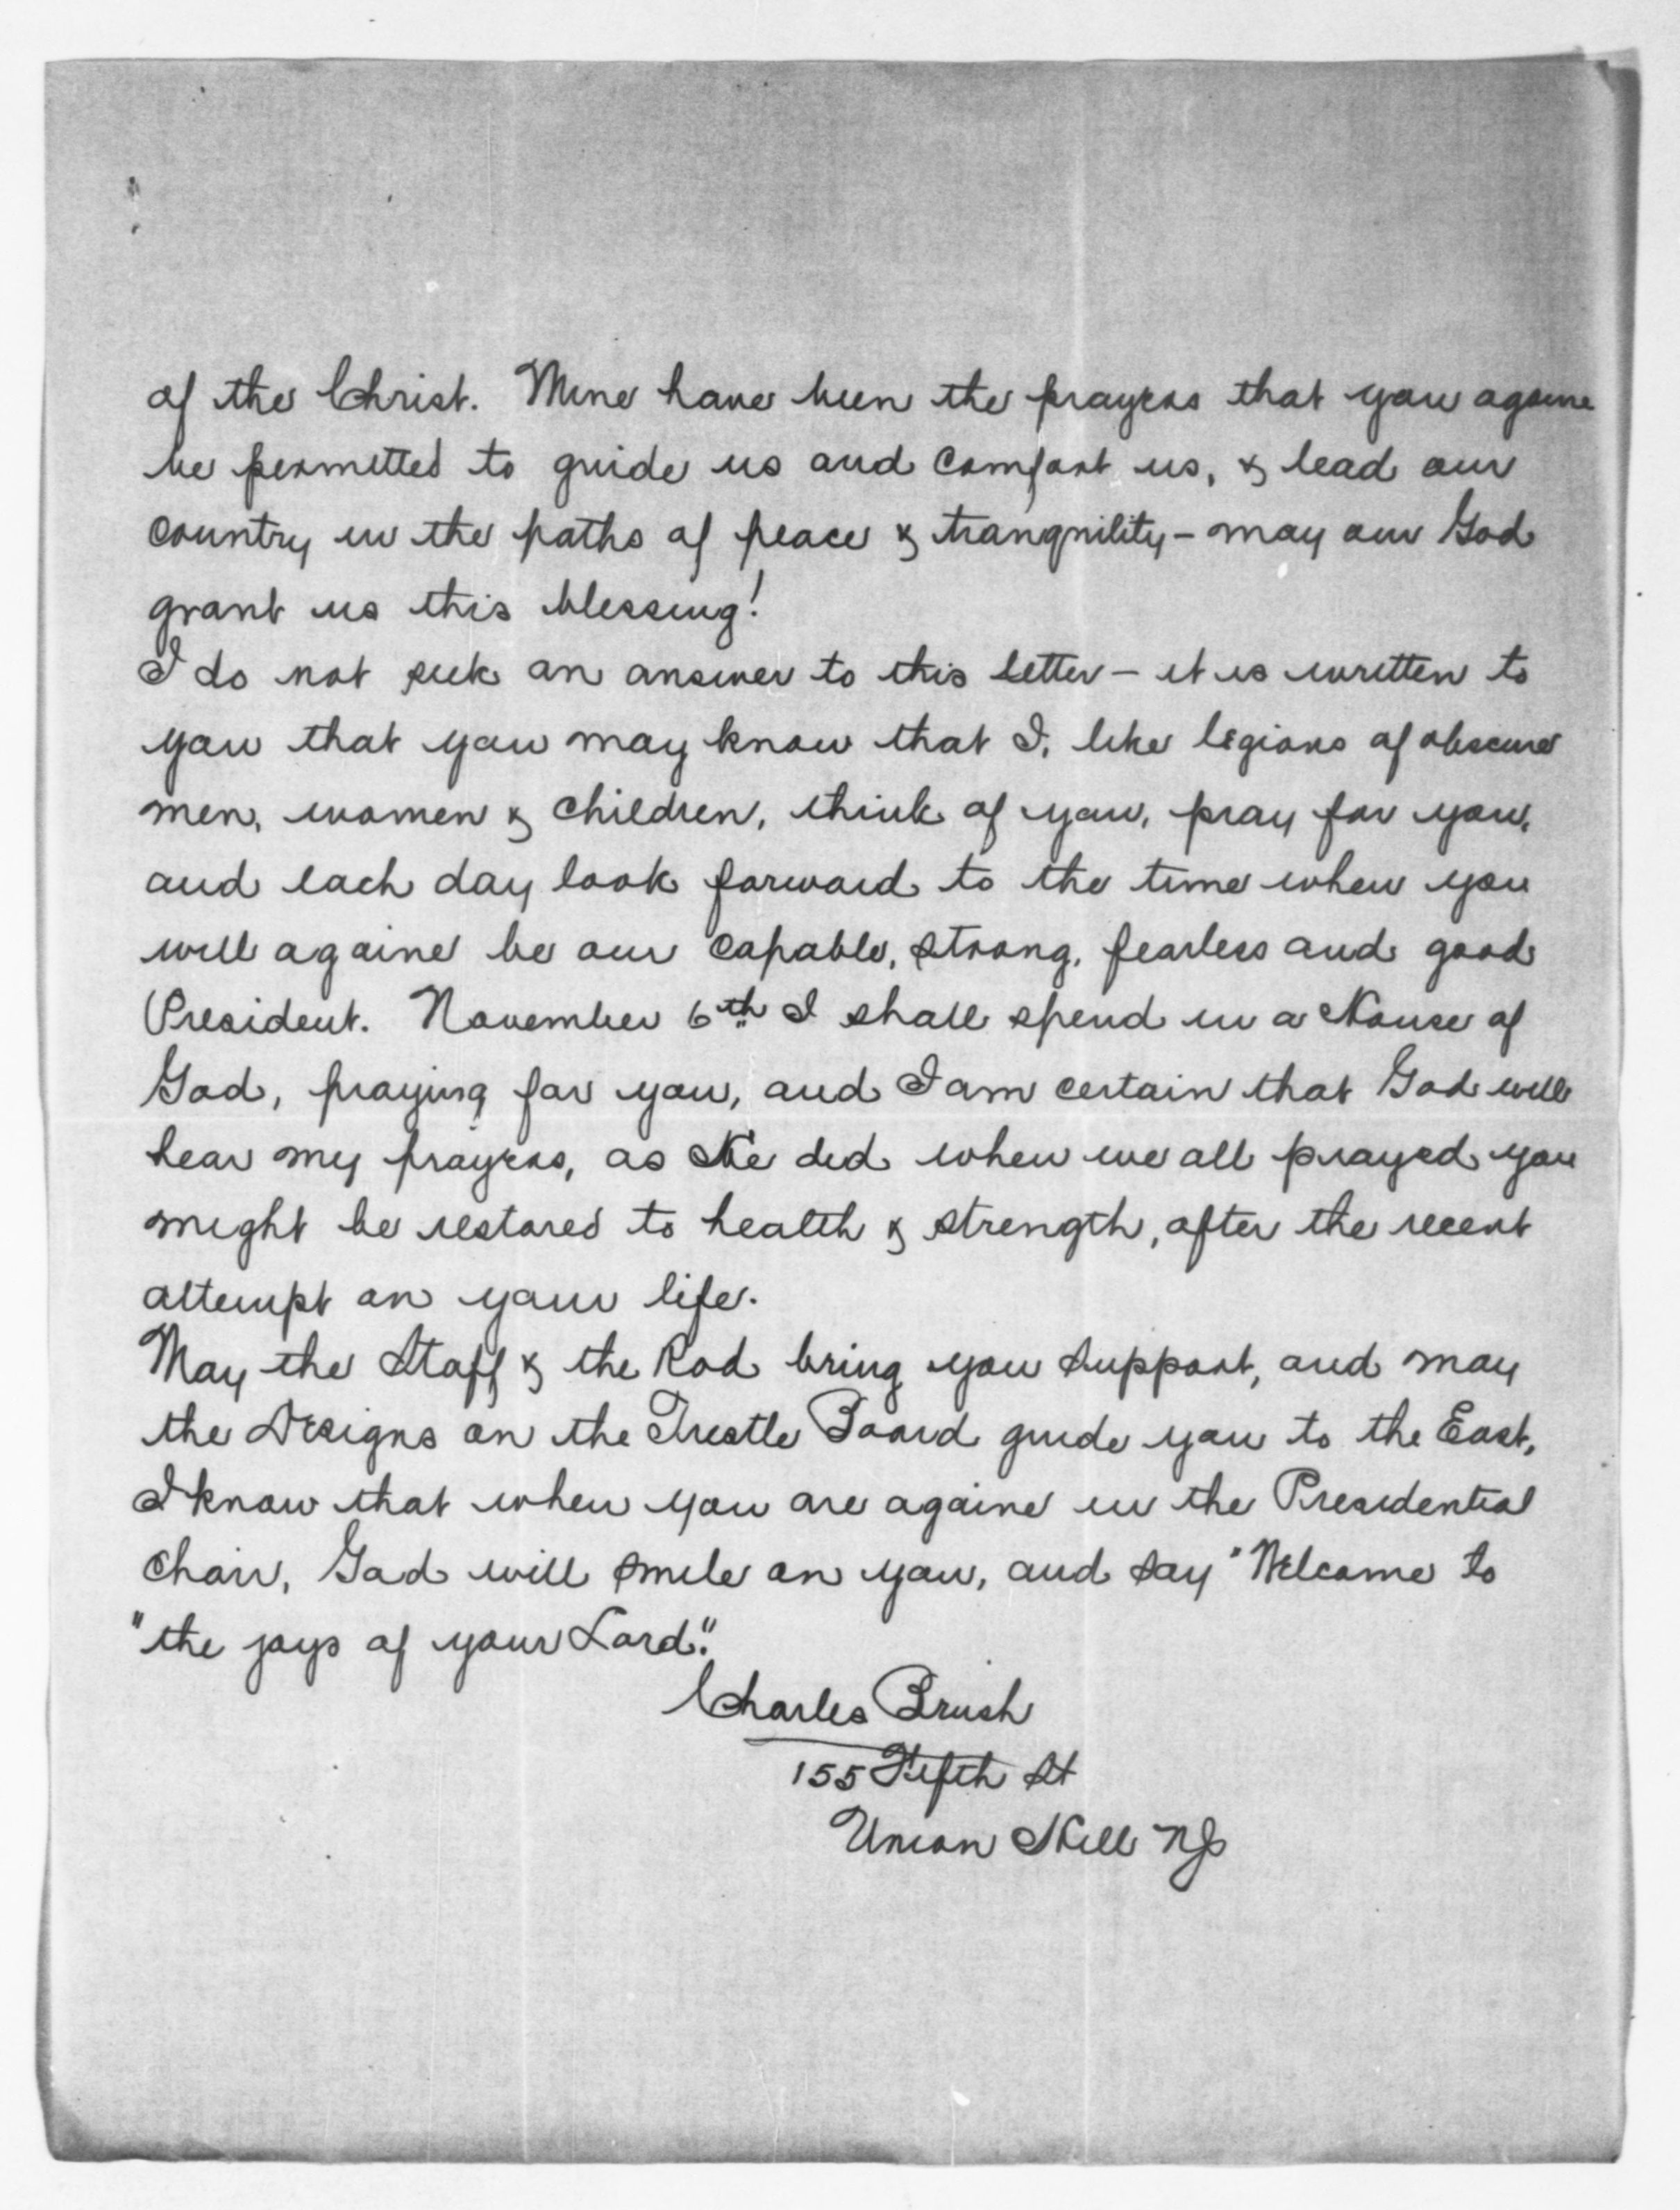 of the Christ. Mine have been the prayers that you againe
be permitted to guide us and comfort us, & lead our
country in the paths of peace & tranquility – may our God
grant us this blessing!
I do not seek an answer to this letter – it is written to
you that you may know that I, like legions of obscure
men, women & children, think of you, pray for you,
and each day look forward to the time when you
will againe be our capable, strong, fearless and good
President. November 6th I shall spend in a House of
God, praying for you, and I am certain that God will
hear my prayers, as He did when we all prayed you
might be restored to health & strength, after the recent
attempt on your life.
May the Staff & the Rod bring you support, and may
the Designs on the Trestle Board guide you to the East,
I know that when you are againe in the Presidential
chair, God will smile on you, and say "Welcome to
"the joys of your Lord."
Charles Brush
155 Fifth St
Union Hill NJ